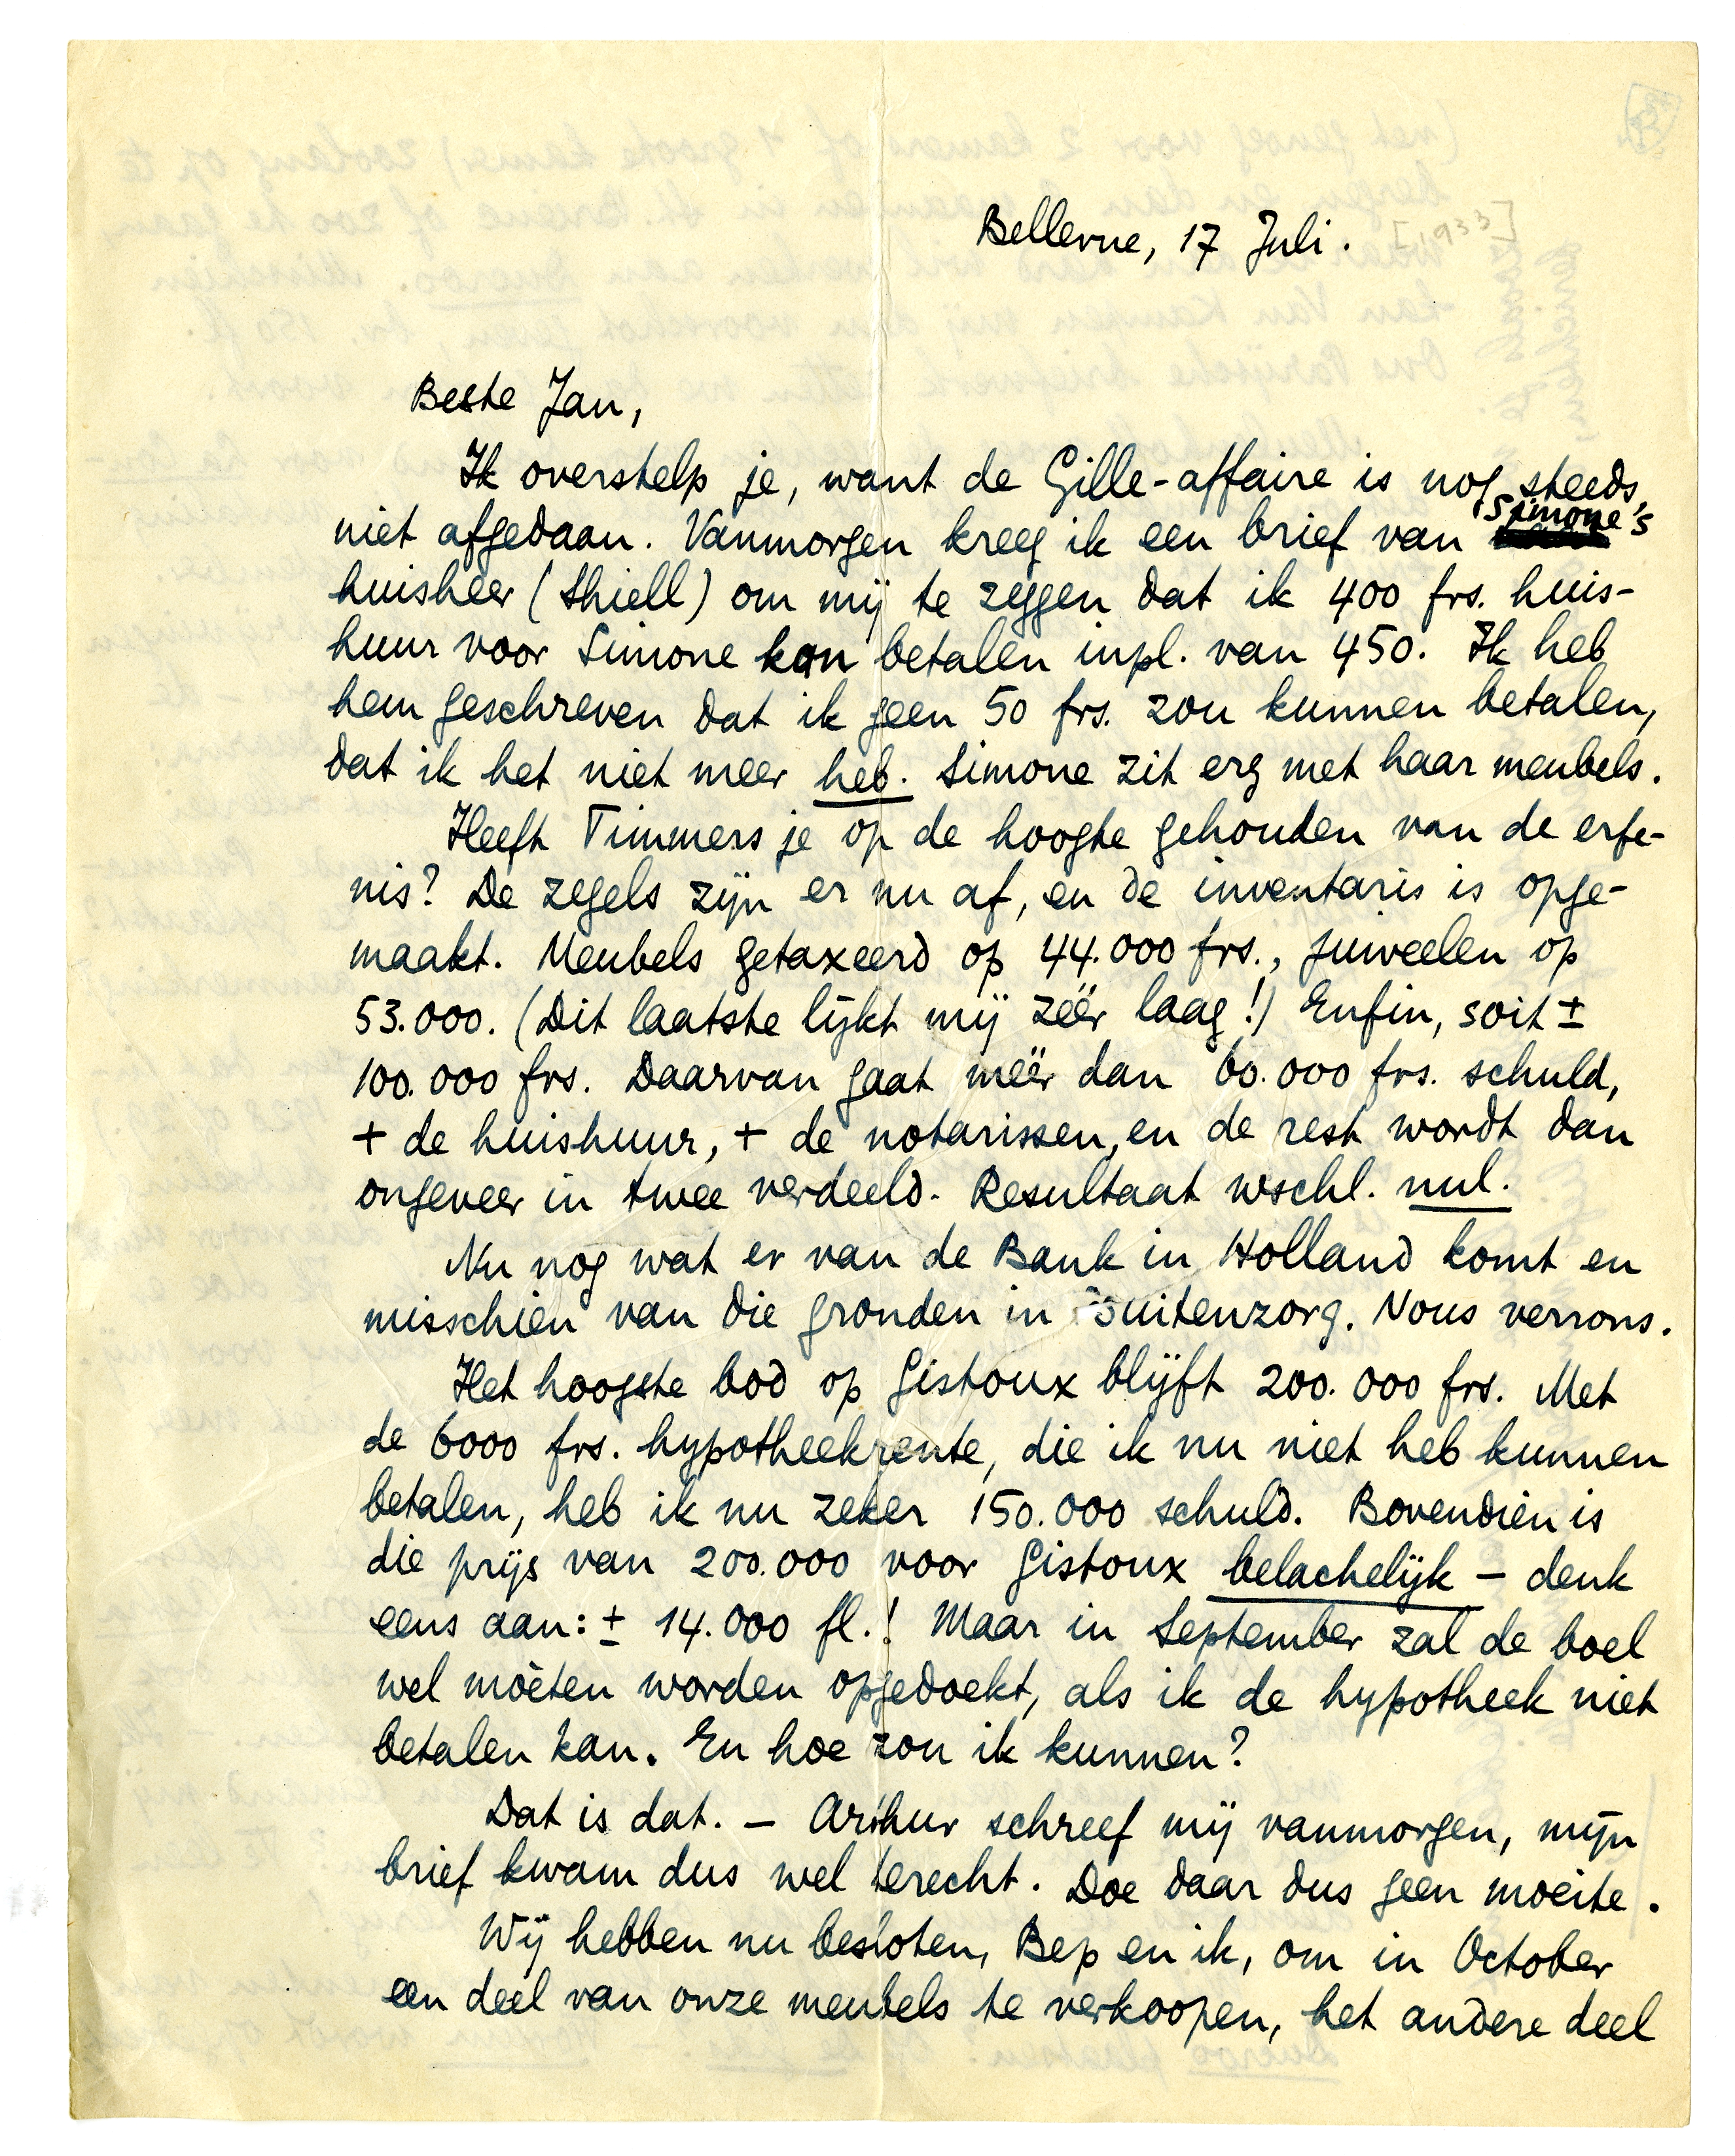 Bellevue, 17 Juli. [1933]
Beste Jan,
Ik overstelp je, want de Gille-affaire is nog steeds
niet afgedaan. Vanmorgen kreeg ik een brief van Simone's
huisheer (Shiell) om mij te zeggen dat ik 400 frs. huis-
huur voor Simone kan betalen inpl. van 450. Ik heb
hem geschreven dat ik geen 50 frs. zou kunnen betalen,
dat ik het niet meer heb. Simone zit erg met haar meubels.
Heeft Timmers je op de hoogte gehouden van de erfe-
nis? De zegels zijn er nu af, en de inventaris is opge-
maakt. Meubels getaxeerd op 44.000 frs., juweelen op
53.000. (Dit laatste lijkt mij zéér laag!) Enfin, soit ±
100.000 frs. Daarvan gaat méér dan 60.000 frs. schuld,
+ de huishuur, + de notarissen, en de rest wordt dan
ongeveer in twee verdeeld. Resultaat wschl. nul.
Nu nog wat er van de Bank in Holland komt en
misschien van die gronden in Buitenzorg. Nous verrons.
Het hoogste bod op Gistoux blijft 200.000 frs. Met
de 6000 frs. hypotheekrente, die ik nu niet heb kunnen
betalen, heb ik nu zeker 150.000 schuld. Bovendien is
die prijs van 200.000 voor Gistoux belachelijk – denk
eens aan: ± 14.000 fl.! Maar in September zal de boel
wel mòeten worden opgedoekt, als ik de hypotheek niet
betalen kan. En hoe zou ik kunnen?
Dat is dat. – Arthur schreef mij vanmorgen, mijn
brief kwam dus wel terecht. Doe daar dus geen moeite.
Wij hebben nu besloten, Bep en ik, om in October
een deel van onze meubels te verkoopen, het andere deel